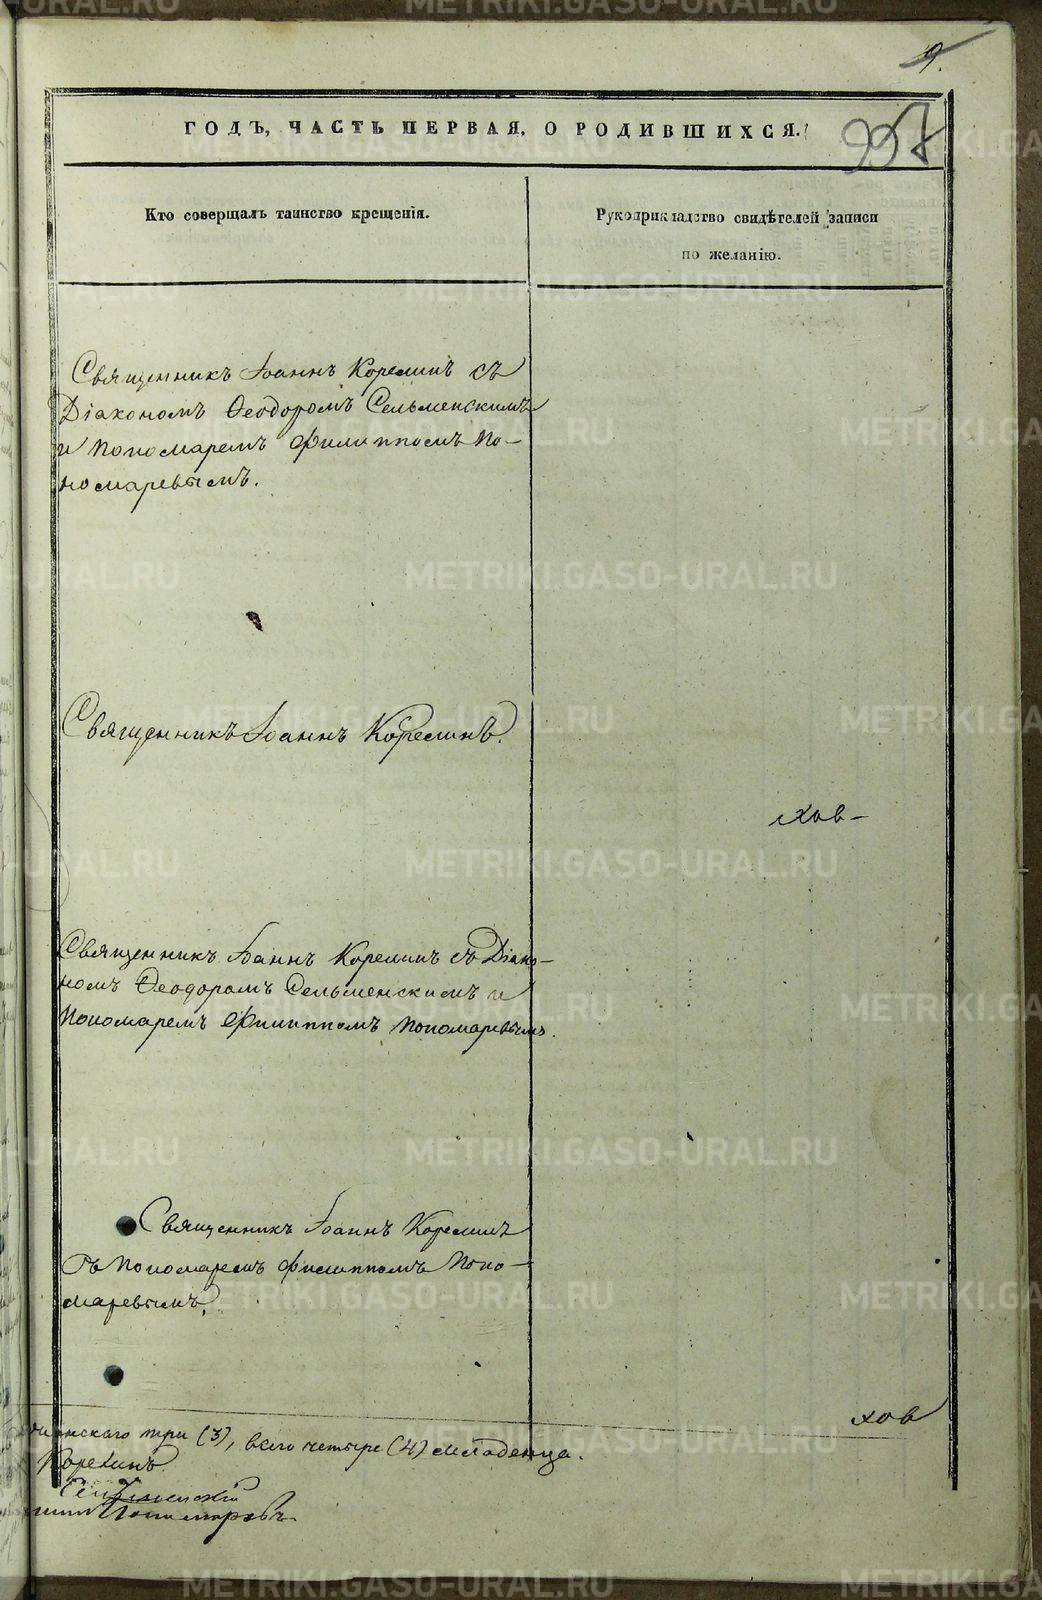 9.
957
ГОДЪ, ЧАСТЬ ПЕРВАЯ, О РОДИВШИХСЯ.
Кто совершалъ таинство крещенія.
Рукоприкладство свидѣтелей записи
по желанію.
Священникъ Іоаннъ Корелинъ съ
Діакономъ Ѳеодоромъ Сельменскимъ
и Пономаремъ Филиппомъ По-
номаревымъ.
Священникъ Іоаннъ Корелинъ.
Священникъ Іоаннъ Корелинъ съ Діако-
номъ Ѳеодоромъ Сельменскимъ и
Пономаремъ Филиппомъ Пономаревымъ.
Священникъ Іоаннъ Корелинъ
съ Пономаремъ Филиппомъ Поно-
маревымъ.
три (3), всего четыре (4) младенца.
Корелинъ
Сельменскій
Пономаревъ
METRIKI.GASO-URAL.RU